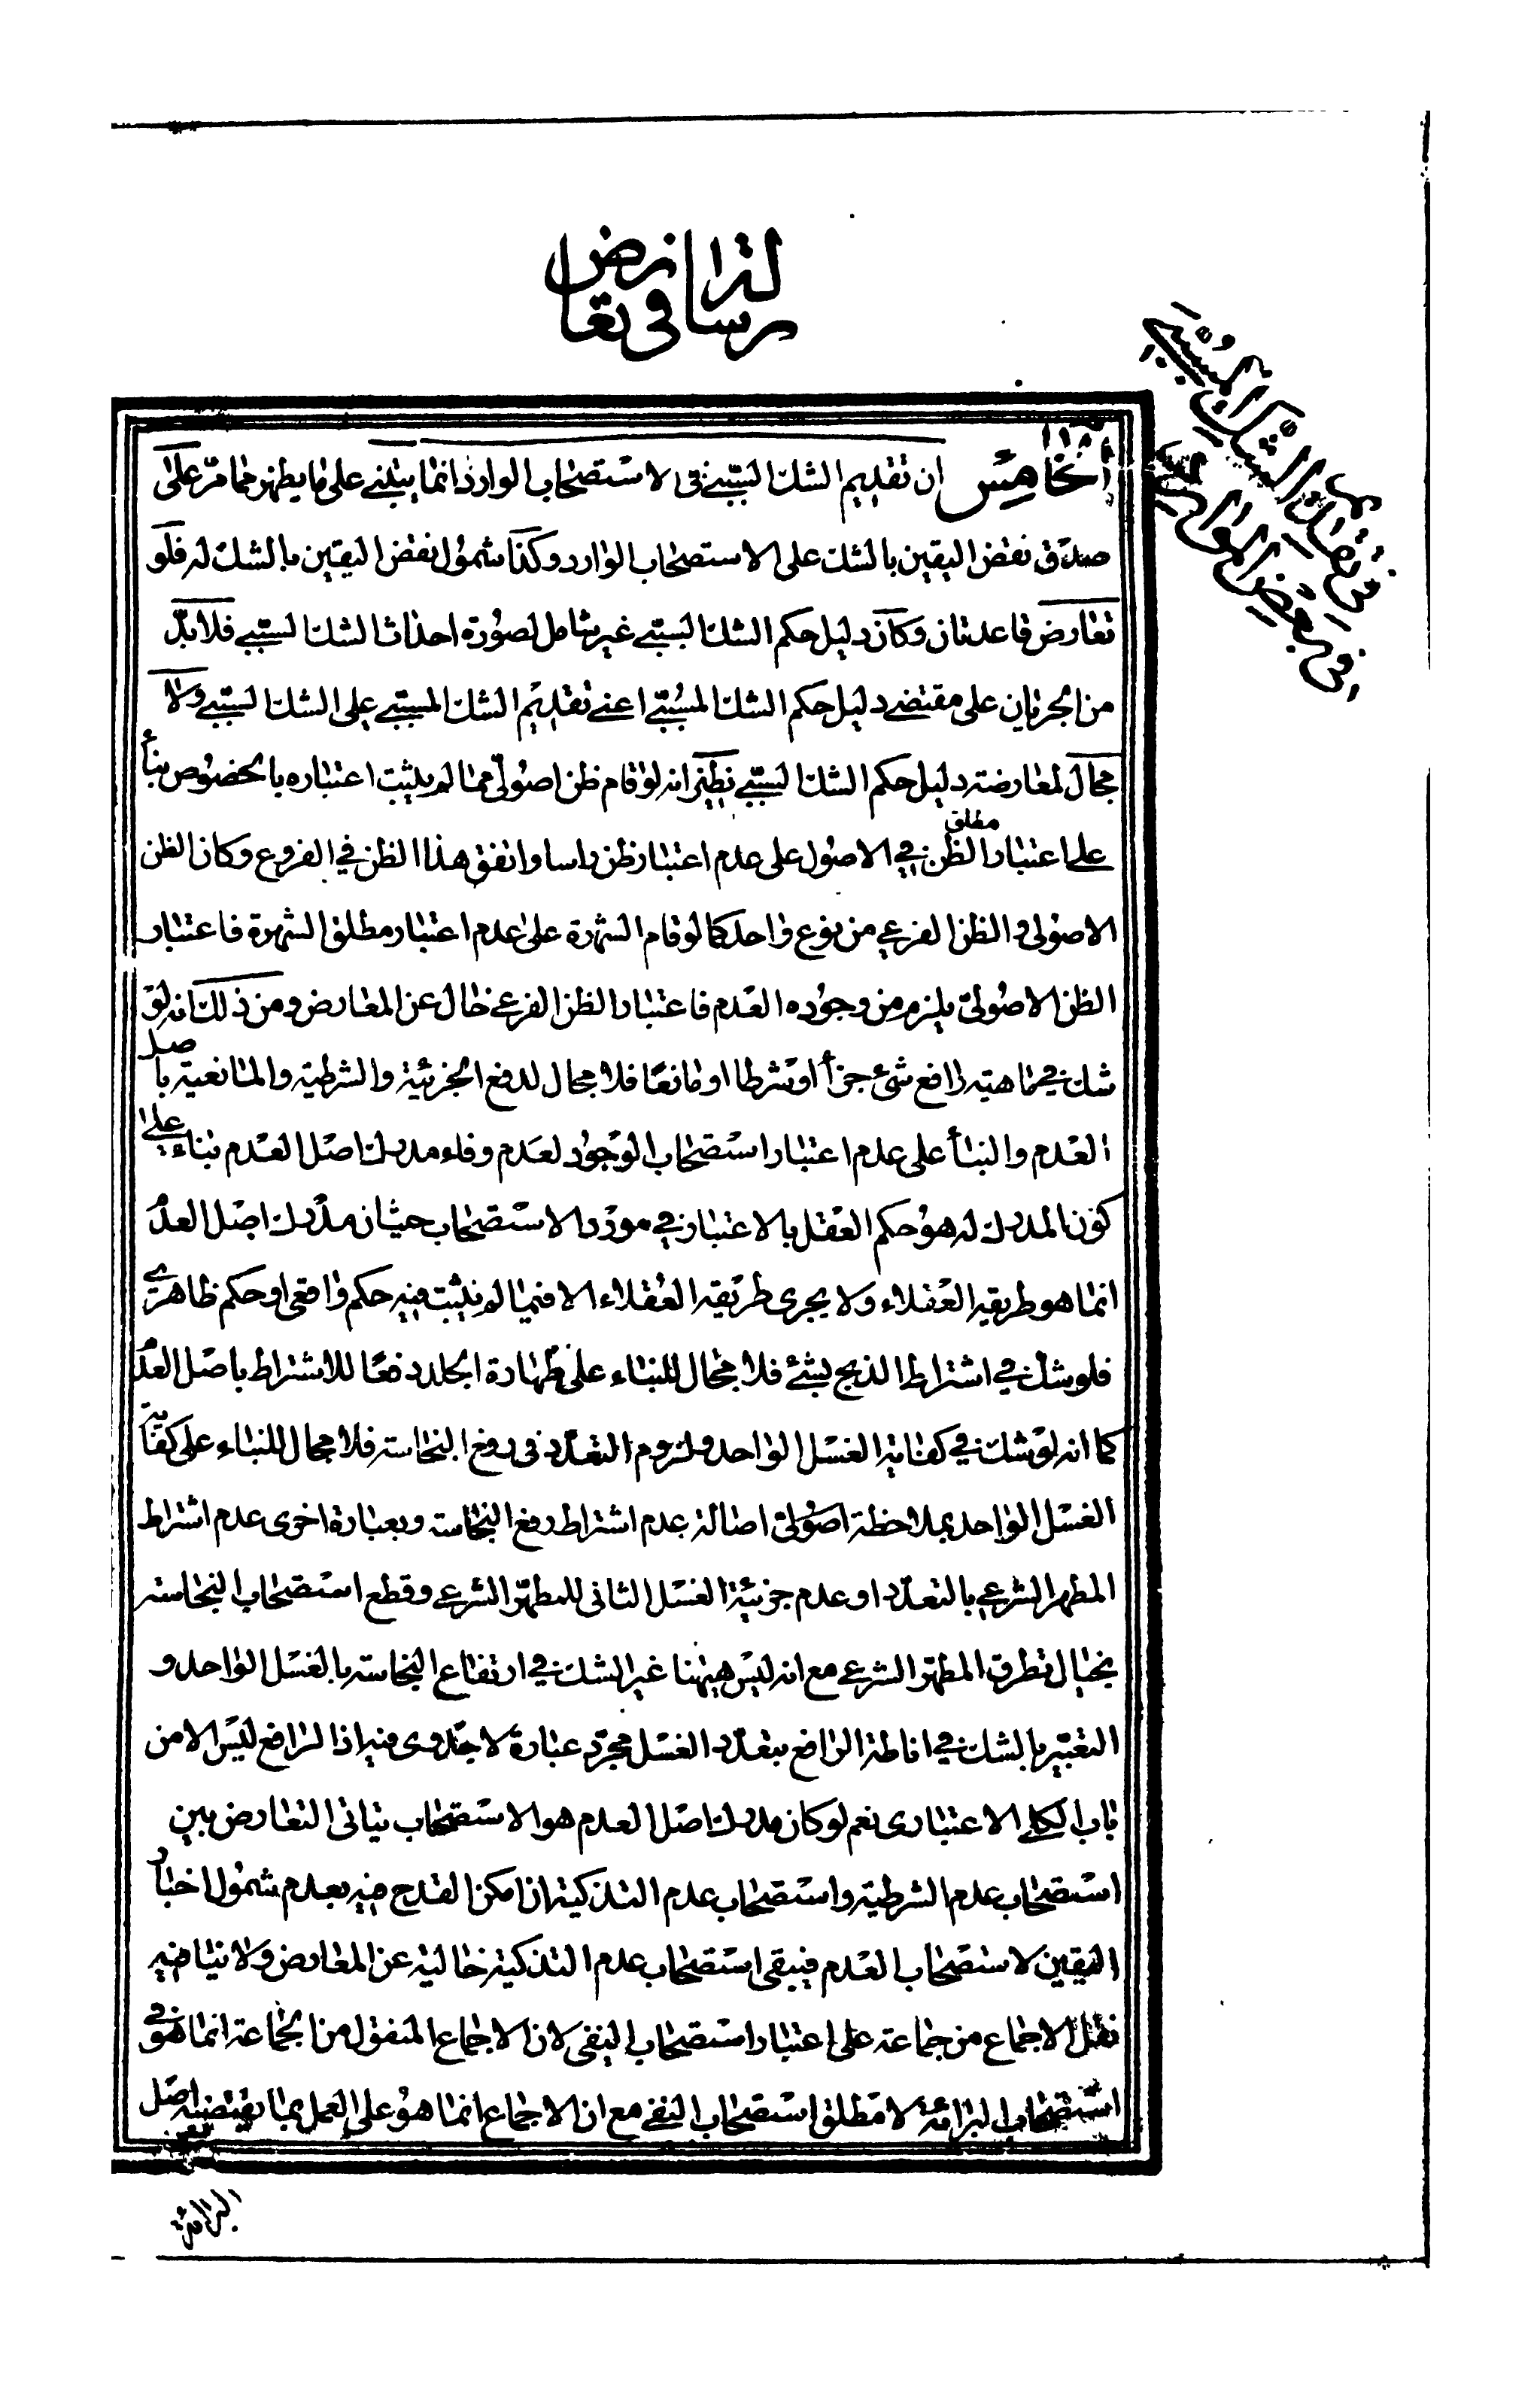 رسالة في تعارض
في تقديم الشك المسببي
في بعض الموارد
الخامس ان تقديم الشك السببي فى الاستصحاب الوارد انما يبتنى على ما يظهر مما مر على
صدق نقض اليقين بالشك على الاستصحاب الوارد وكذا شمول نقض اليقين بالشك له فلو
تعارض قاعدتان وكان دليل حكم الشك السببي غير شامل لصورة احداث الشك السببي فلا بد
من الجريان على مقتضى دليل حكم الشك المسببي اعنى تقديم الشك المسببي على الشك السببي ولا
مجال لمعارضته دليل حكم الشك السببي نظير انه لو قام ظن اصولى مما لم يثبت اعتباره بالخصوص بناء
على اعتبار مطلق الظن في الاصول على عدم اعتبار ظن راسا واتفق هذا الظن في الفروع وكان الظن
الاصولى والظن الفرعى من نوع واحد كما لو قام الشهرة على عدم اعتبار مطلق الشهرة فاعتبار
الظن الاصولى يلزم من وجوده العدم فاعتبار الظن الفرعى خال عن المعارض ومن ذلك انه لو
شك في ماهية رافع شئ جزأ او شرطا او مانعا فلا مجال لدفع الجزئية والشرطية والمانعية باصل
العدم والبناء على عدم اعتبار استصحاب الوجود لعدم وفاء مدرك اصل العدم بناء على
كون المدرك له هو حكم العقل بالاعتبار في مورد الاستصحاب حيث ان مدرك اصل العدم
انما هو طريقه العقلاء ولا يجرى طريقه العقلاء الا فيما لم يثبت فيه حكم واقعى او حكم ظاهرى
فلو شك في اشتراط الذبح بشئ فلا مجال للبناء على طهارة الجلد دفعا للاشتراط باصل العدم
كما انه لو شك في كفاية الغسل الواحد ولزوم التعدد فى رفع النجاسة فلا مجال للبناء على كفاية
الغسل الواحد بملاحظة اصولى اصالة عدم اشتراط رفع النجاسة وبعبارة اخرى عدم اشتراط
المطهر الشرعي بالتعدد او عدم جزئية الغسل الثانى للمطهر الشرعى وقطع استصحاب النجاسه
بخيال تطرق المطهر الشرعى مع انه ليس هيهنا غير الشك في ارتفاع النجاسه بالغسل الواحد و
التعبير بالشك في اناطة الرافع بتعدد الغسل مجرد عبارة لا جدوى فيه اذا الرافع ليس الا من
باب الكلى الاعتبارى نعم لو كان مدرك اصل العدم هو الاستصحاب يتاتى التعارض بين
استصحاب عدم الشرطية واستصحاب عدم التذكية ان امكن القدح فيه بعدم شمول اخبار
اليقين لاستصحاب العدم فيبقى استصحاب عدم التذكية خالية عن المعارض ولا ينافيه
نقل الاجماع من جماعة على اعتبار استصحاب النفى لان الاجماع المنقول من الجماعة انما هو في
استصحاب البرائة لا مطلق استصحاب النفى مع ان الاجماع انما هو على العمل بما يقتضيه اصل
البرائة